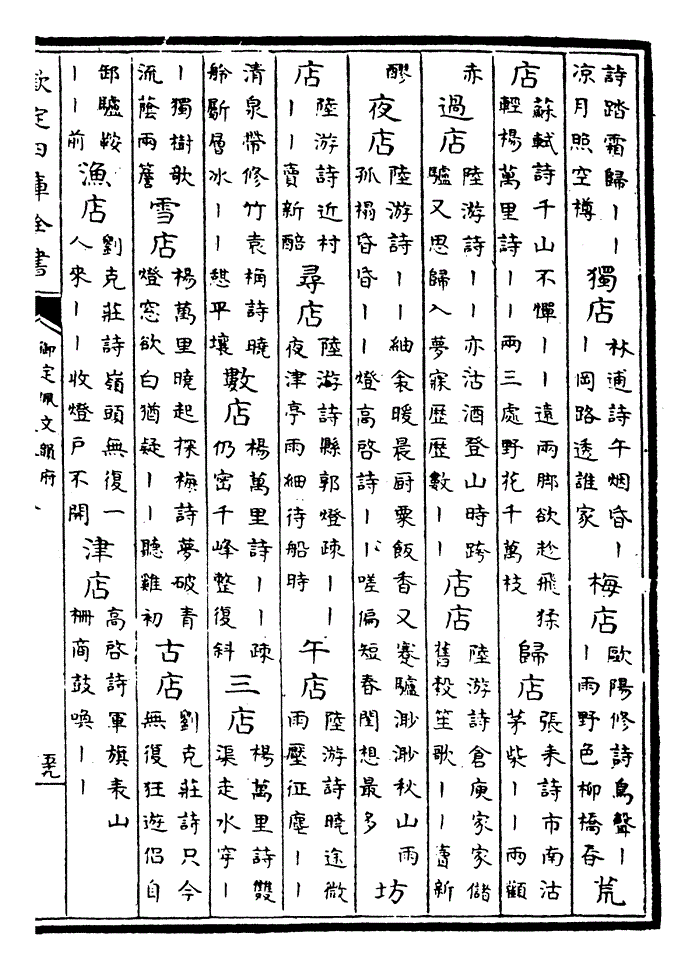 詩踏霜歸丨丨凉月照空樽 獨店 林逋詩午烟昏丨丨岡路透誰家 梅店 歐陽修詩鳥聲丨丨雨野色柳橋春 荒
店 蘇軾詩千山不憚丨丨遠兩脚欲趁飛猱輕楊萬里詩丨丨兩三處野花千萬枝 歸店 張耒詩市南沽茅柴丨丨兩顴
赤 過店 陸游詩丨丨亦沽酒登山時跨驢又思歸入夢寐歷歷數丨丨 店店 陸游詩倉庾家家儲舊穀笙歌丨丨賣新
醪 夜店 陸游詩丨丨紬衾暖晨厨粟飯香又蹇驢渺渺秋山雨孤榻昏昏丨丨燈高啓詩丨丨嗟偏短春閨想最多 坊
店 陸游詩近村丨丨賣新醅 尋店 陸游詩縣郭燈疎丨丨夜津亭雨細待船時 午店 陸游詩曉途微雨壓征塵丨丨
清泉帶修竹袁桷詩曉舲斷層冰丨丨憩平壤 數店 楊萬里詩丨丨疎仍密千峰整復斜 三店 楊萬里詩雙渠走水穿丨
丨獨樹歌流蔭兩簷 雪店 楊萬里曉起探梅詩夢破青燈窓欲白猶疑丨丨聽雞初 古店 劉克莊詩只今無復狂遊侣自
卸驢鞍丨丨前 漁店 劉克莊詩嶺頭無復一人來丨丨收燈戶不開 津店 高啓詩軍旗表山柵商鼓喚丨丨
欽定四庫全書 御定佩文韻府 五九